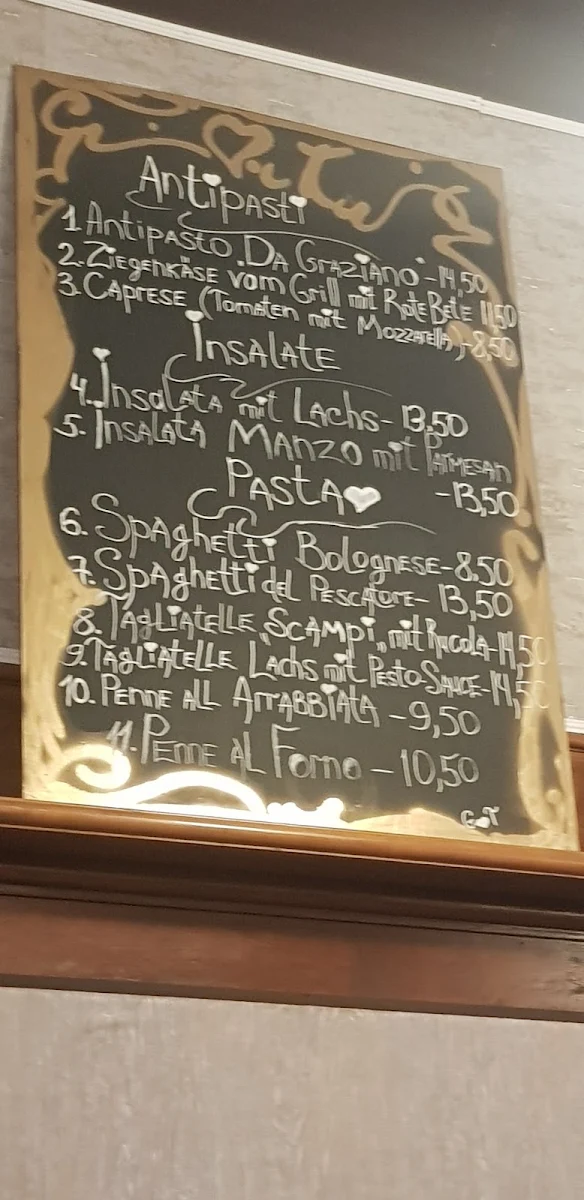 Antipasti
1 Antipasto "Da Graziano" - 14,50
2. Ziegenkäse vom Grill mit Rote Bete 11,50
3. Caprese (Tomaten mit Mozzarella) - 8,50
Insalate
4. Insalata mit Lachs - 13,50
5. Insalata Manzo mit Parmesan
- 13,50
Pasta
6. Spaghetti Bolognese - 8.50
7. Spaghetti del Pescatore - 13,50
8. Tagliatelle „Scampi" mit Rucola - 14,50
9. Tagliatelle Lachs mit Pesto-Sauce - 14,50
10. Penne all Arrabbiata - 9,50
11. Penne al Forno - 10,50